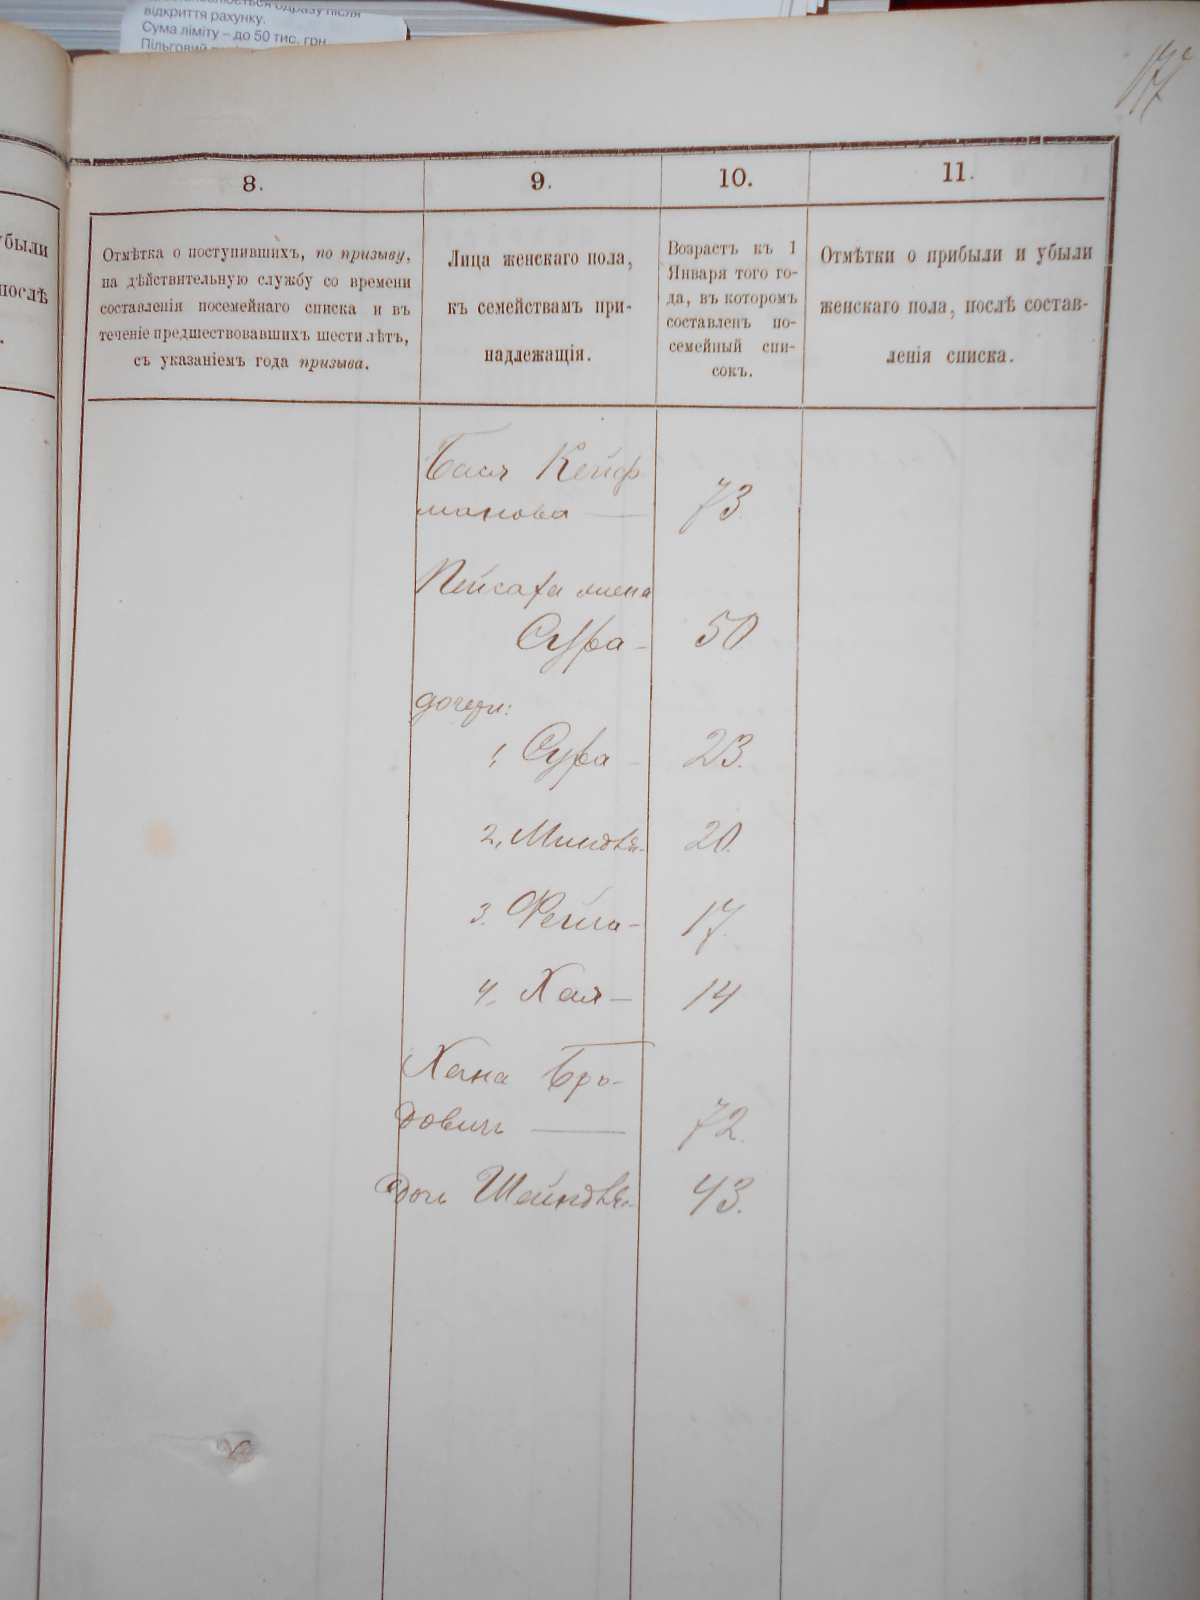 відкриття рахунку.
Сума ліміту – до 50 тис. грн
Пільговий
177
8.
9.
10.
11.
убыли
послѣ
Отмѣтка о поступившихъ, по призыву,
на дѣйствительную службу со времени
составленія посемейнаго списка и въ
теченіе предшествовавшихъ шести лѣтъ,
съ указаніемъ года призыва.
Лица женскаго пола,
къ семействамъ при-
надлежащія.
Возрастъ къ 1
Января того го-
да, въ которомъ
составленъ по-
семейный спи-
сокъ.
Отмѣтки о прибыли и убыли
женскаго пола, послѣ состав-
ленія списка.
Бася Кейф
манова — 73.
Пейсаха жена
Сура - 50.
дочери:
1, Сура - 23.
2, Миндля - 20.
3. Фейга - 17.
4, Хая - 14
Хана Бро-
дович — 72.
дочь Шейндля - 43.